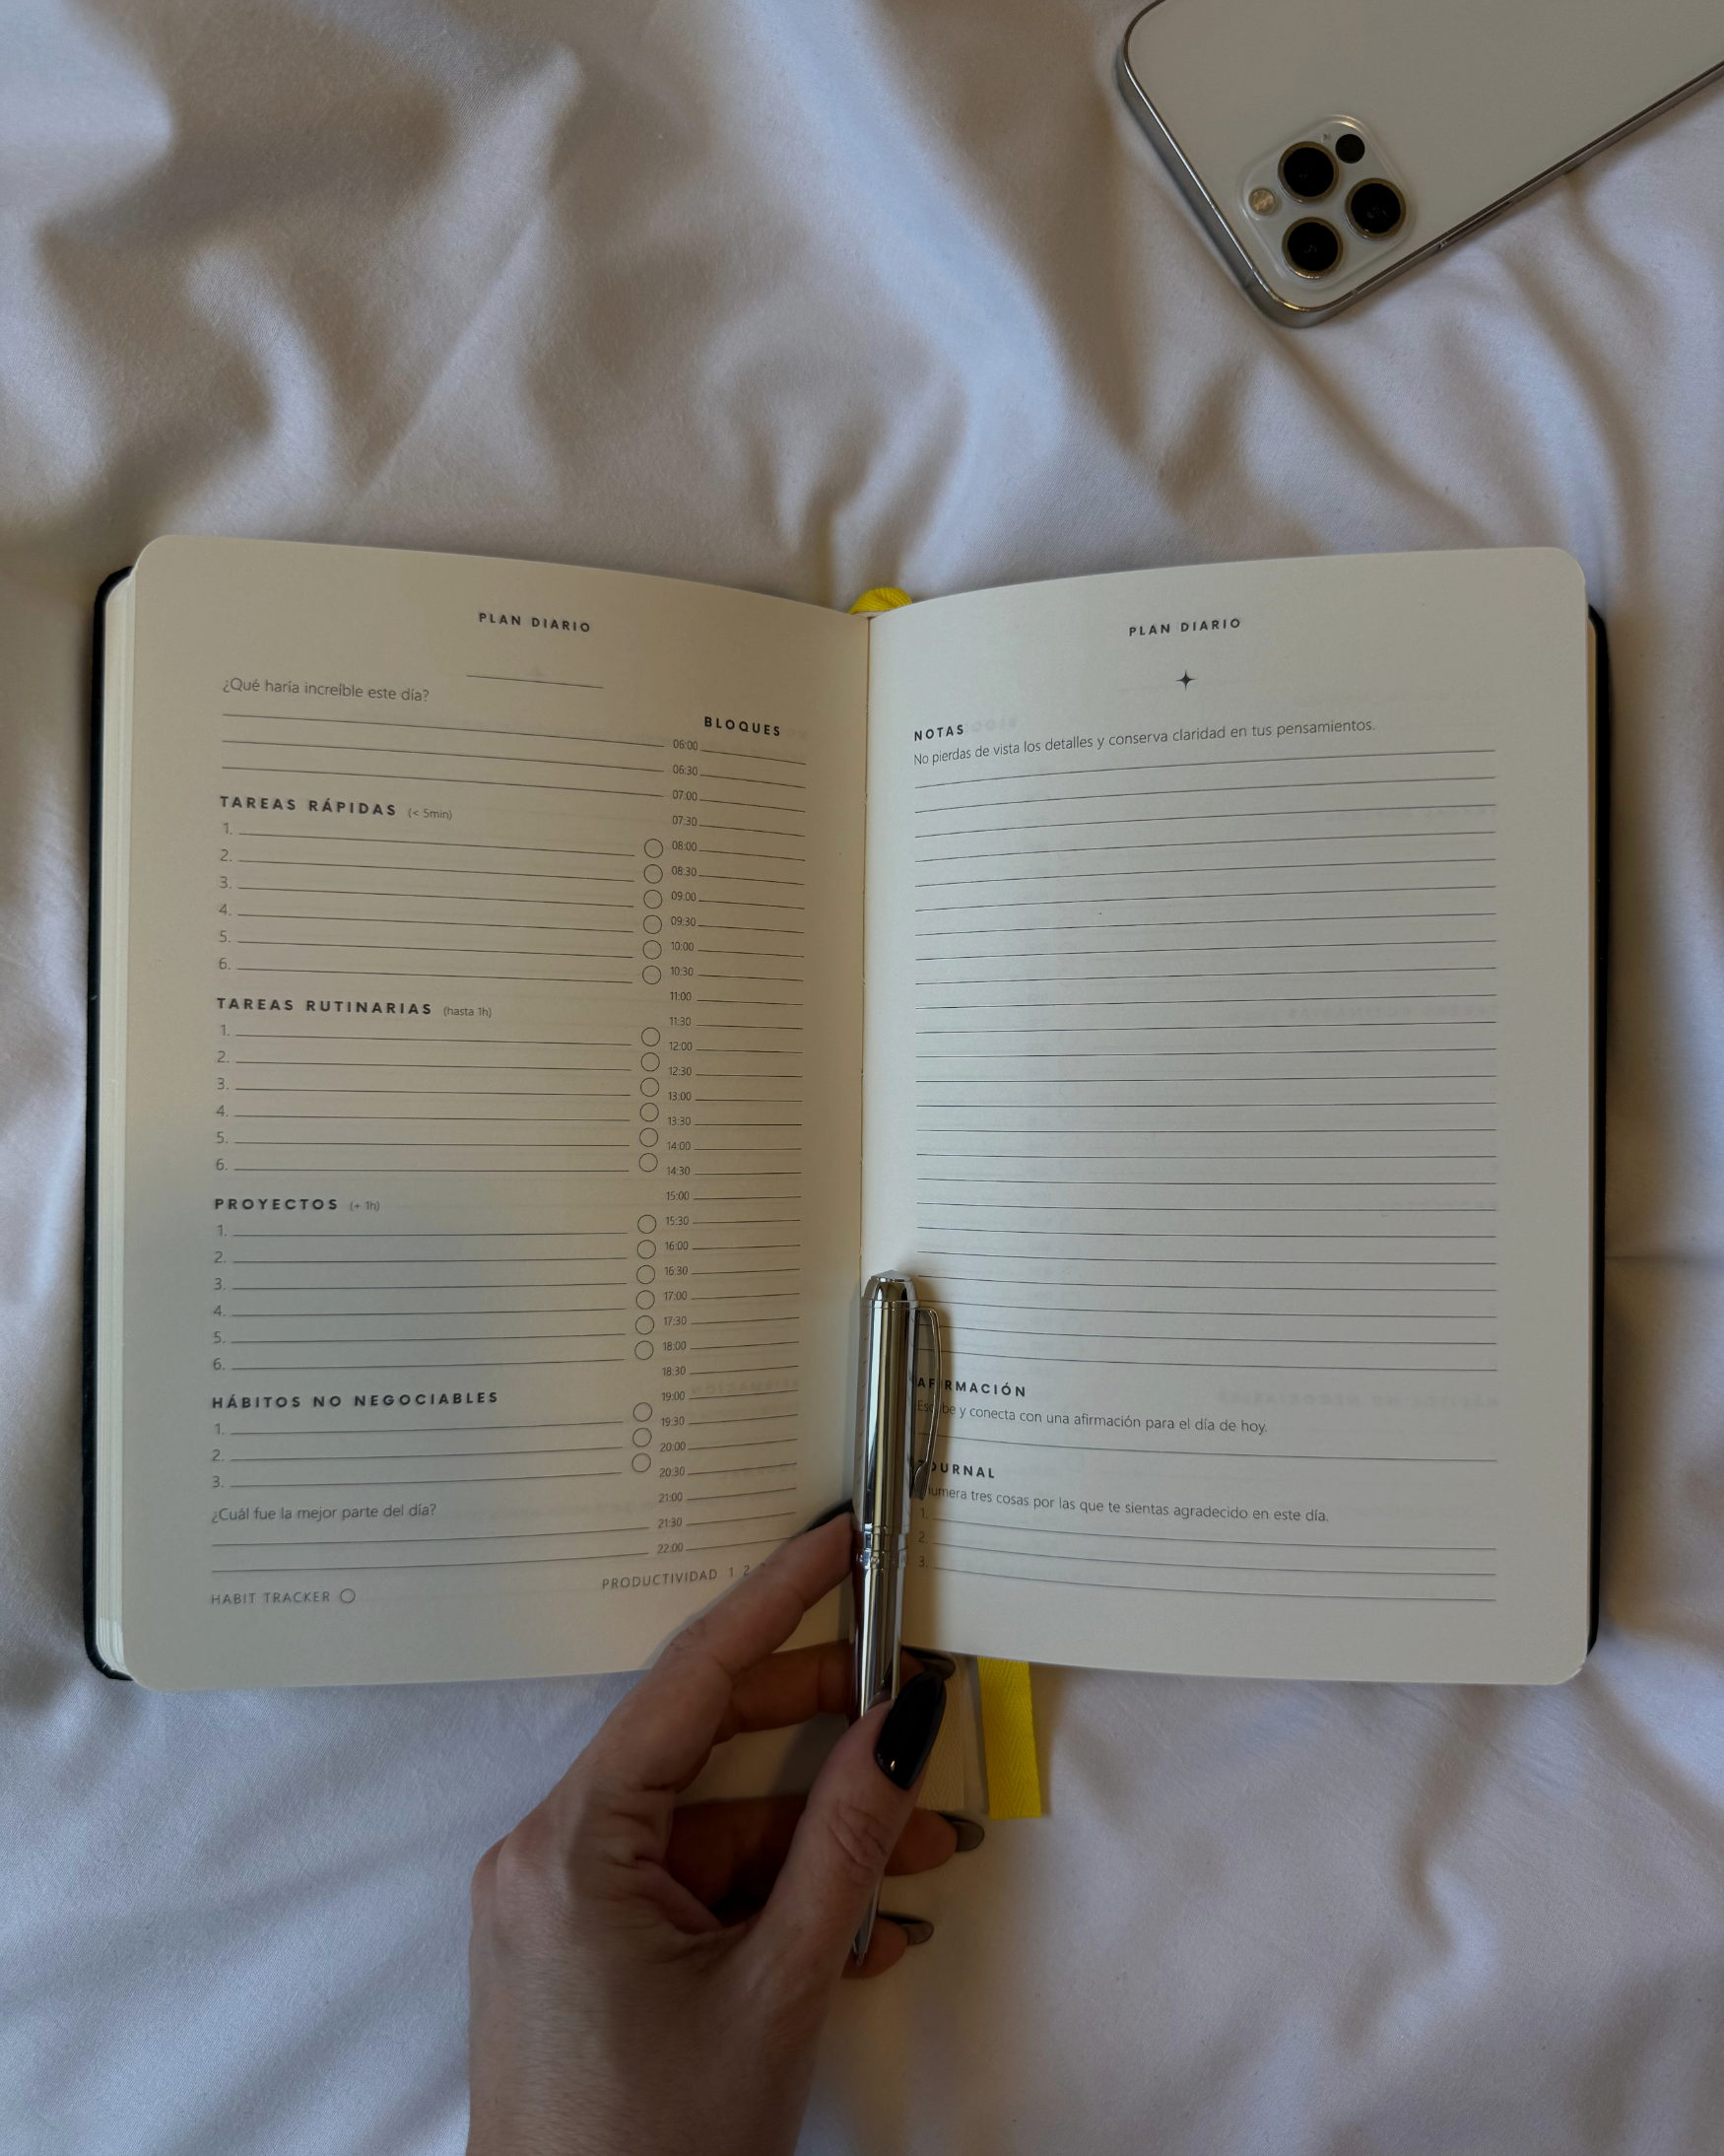 PLAN DIARIO
¿Qué haría increíble este día?
TAREAS RÁPIDAS (< 5min)
1.
2.
3.
4.
5.
6.
TAREAS RUTINARIAS (hasta 1h)
1.
2.
3.
4.
5.
6.
PROYECTOS (+ 1h)
1.
2.
3.
4.
5.
6.
HÁBITOS NO NEGOCIABLES
1.
2.
3.
¿Cuál fue la mejor parte del día?
HABIT TRACKER
BLOQUES
06:00
06:30
07:00
07:30
08:00
08:30
09:00
09:30
10:00
10:30
11:00
11:30
12:00
12:30
13:00
13:30
14:00
14:30
15:00
15:30
16:00
16:30
17:00
17:30
18:00
18:30
19:00
19:30
20:00
20:30
21:00
21:30
22:00
PRODUCTIVIDAD 1 2
PLAN DIARIO
NOTAS
No pierdas de vista los detalles y conserva claridad en tus pensamientos.
AFIRMACIÓN
Escribe y conecta con una afirmación para el día de hoy.
JOURNAL
Enumera tres cosas por las que te sientas agradecido en este día.
1.
2.
3.